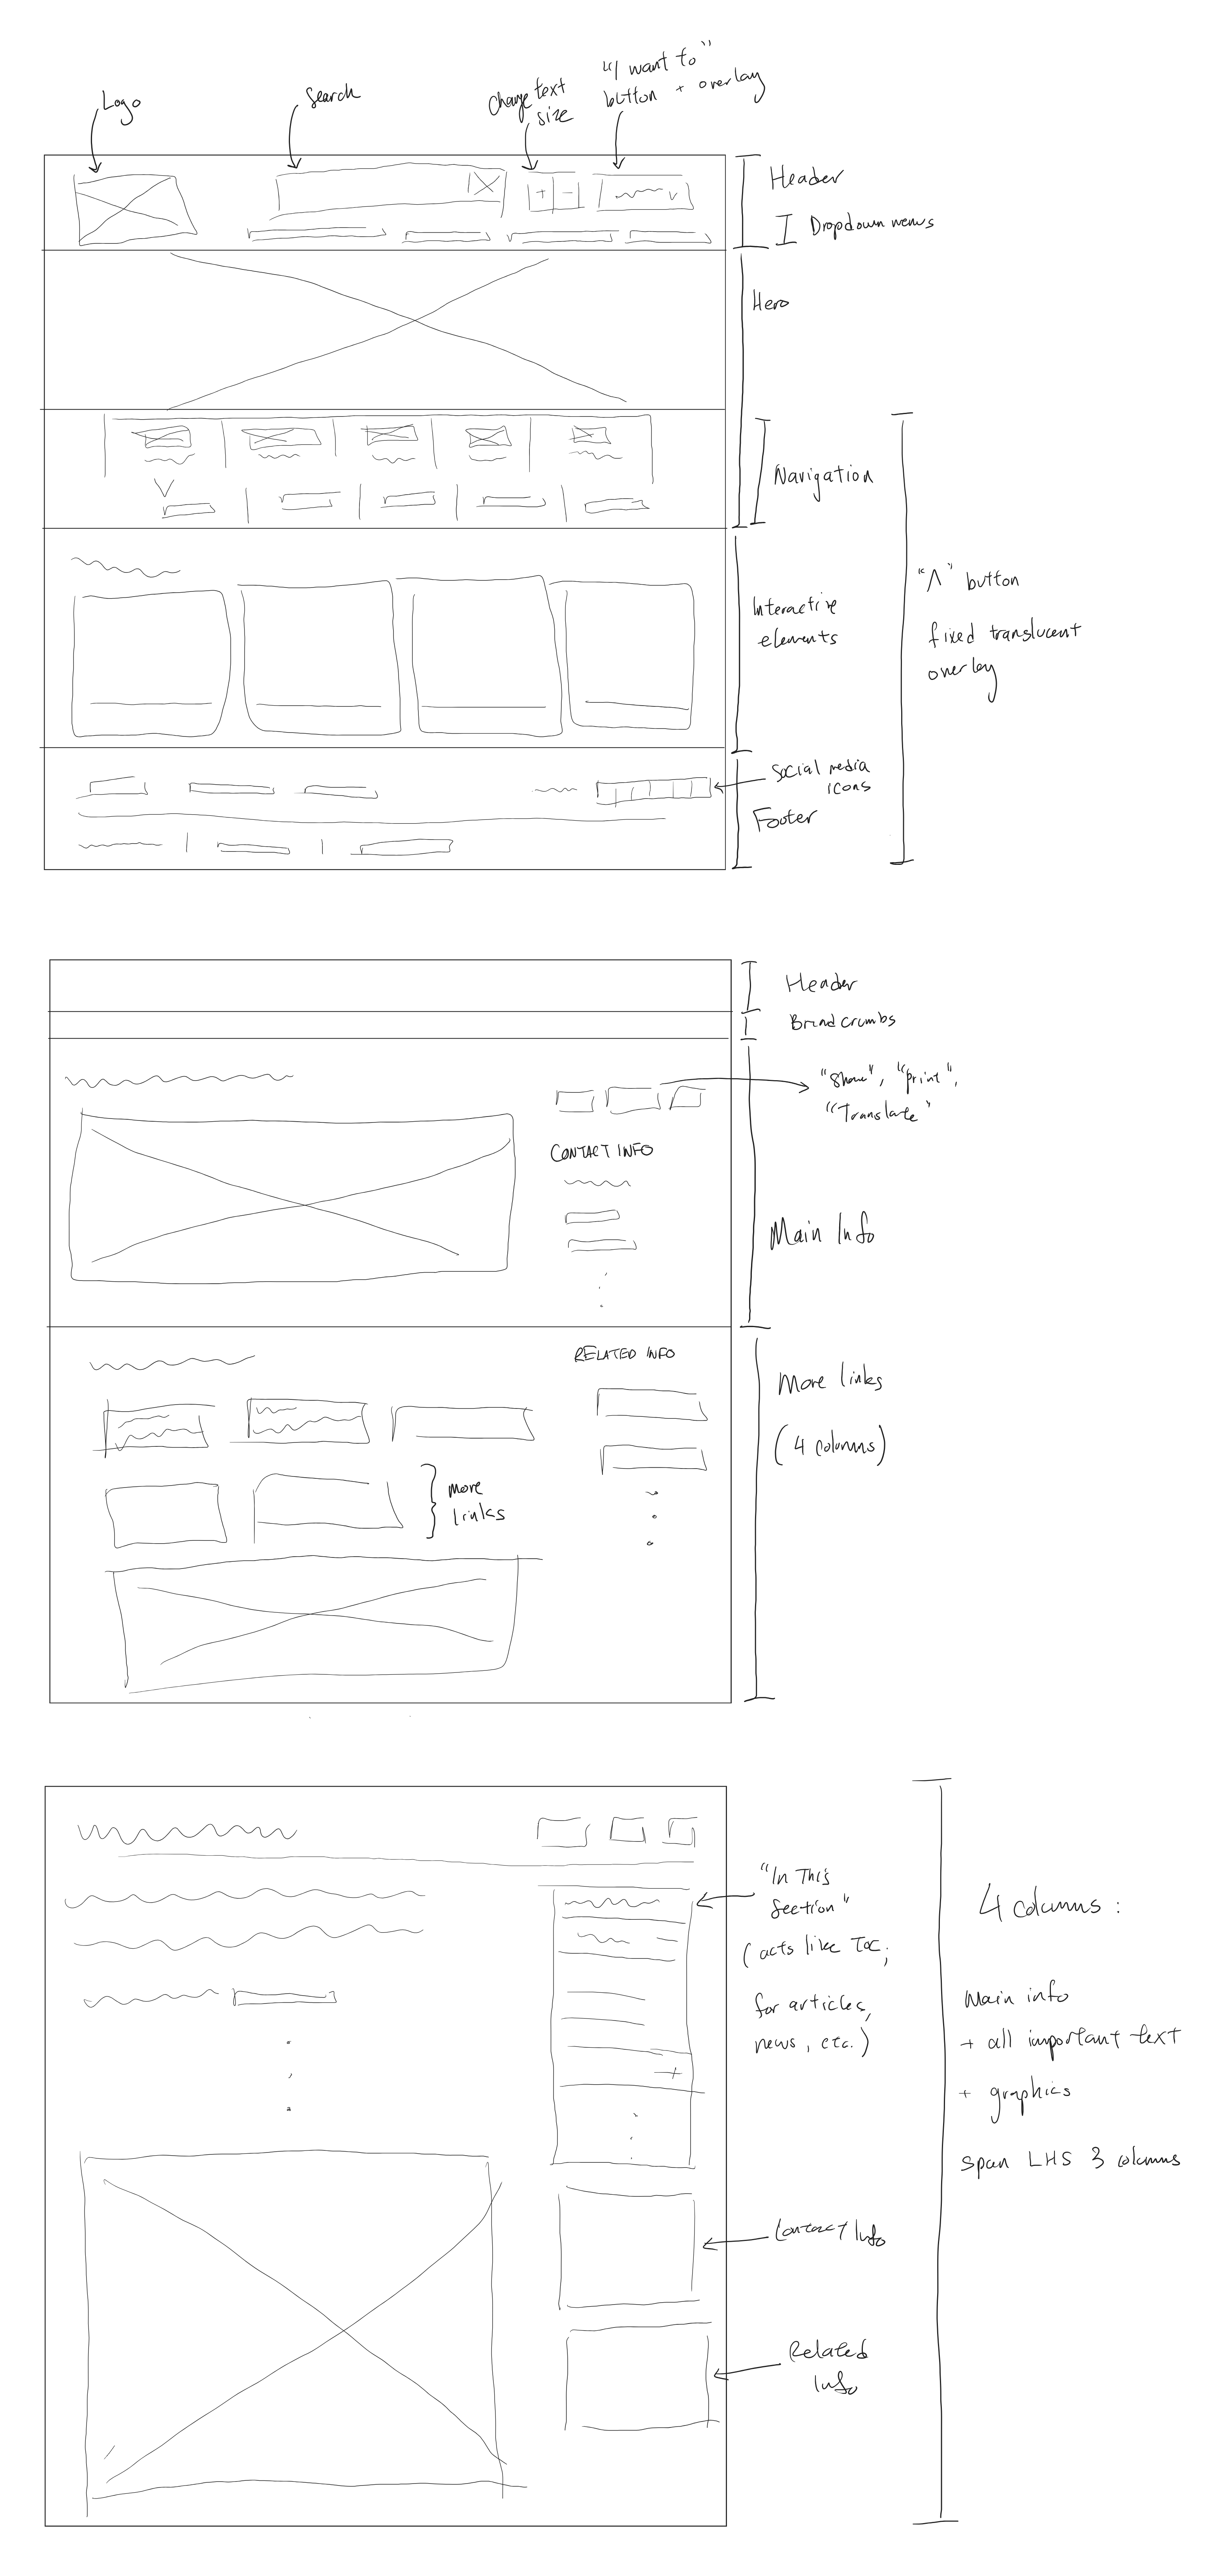 Logo
Search
Change text
size
"I want to"
button + overlay
Header
Dropdown menus
Hero
Navigation
"Λ" button
fixed translucent
overlay
Interactive
elements
Social media
icons
Footer
Header
Breadcrumbs
"Share", "print",
"Translate"
CONTACT INFO
Main Info
RELATED INFO
More links
(4 columns)
more
links
"In This
Section"
(acts like ToC;
for articles,
news, etc.)
4 columns:
Main info
+ all important text
+ graphics
span LHS 3 columns
Contact Info
Related
Info